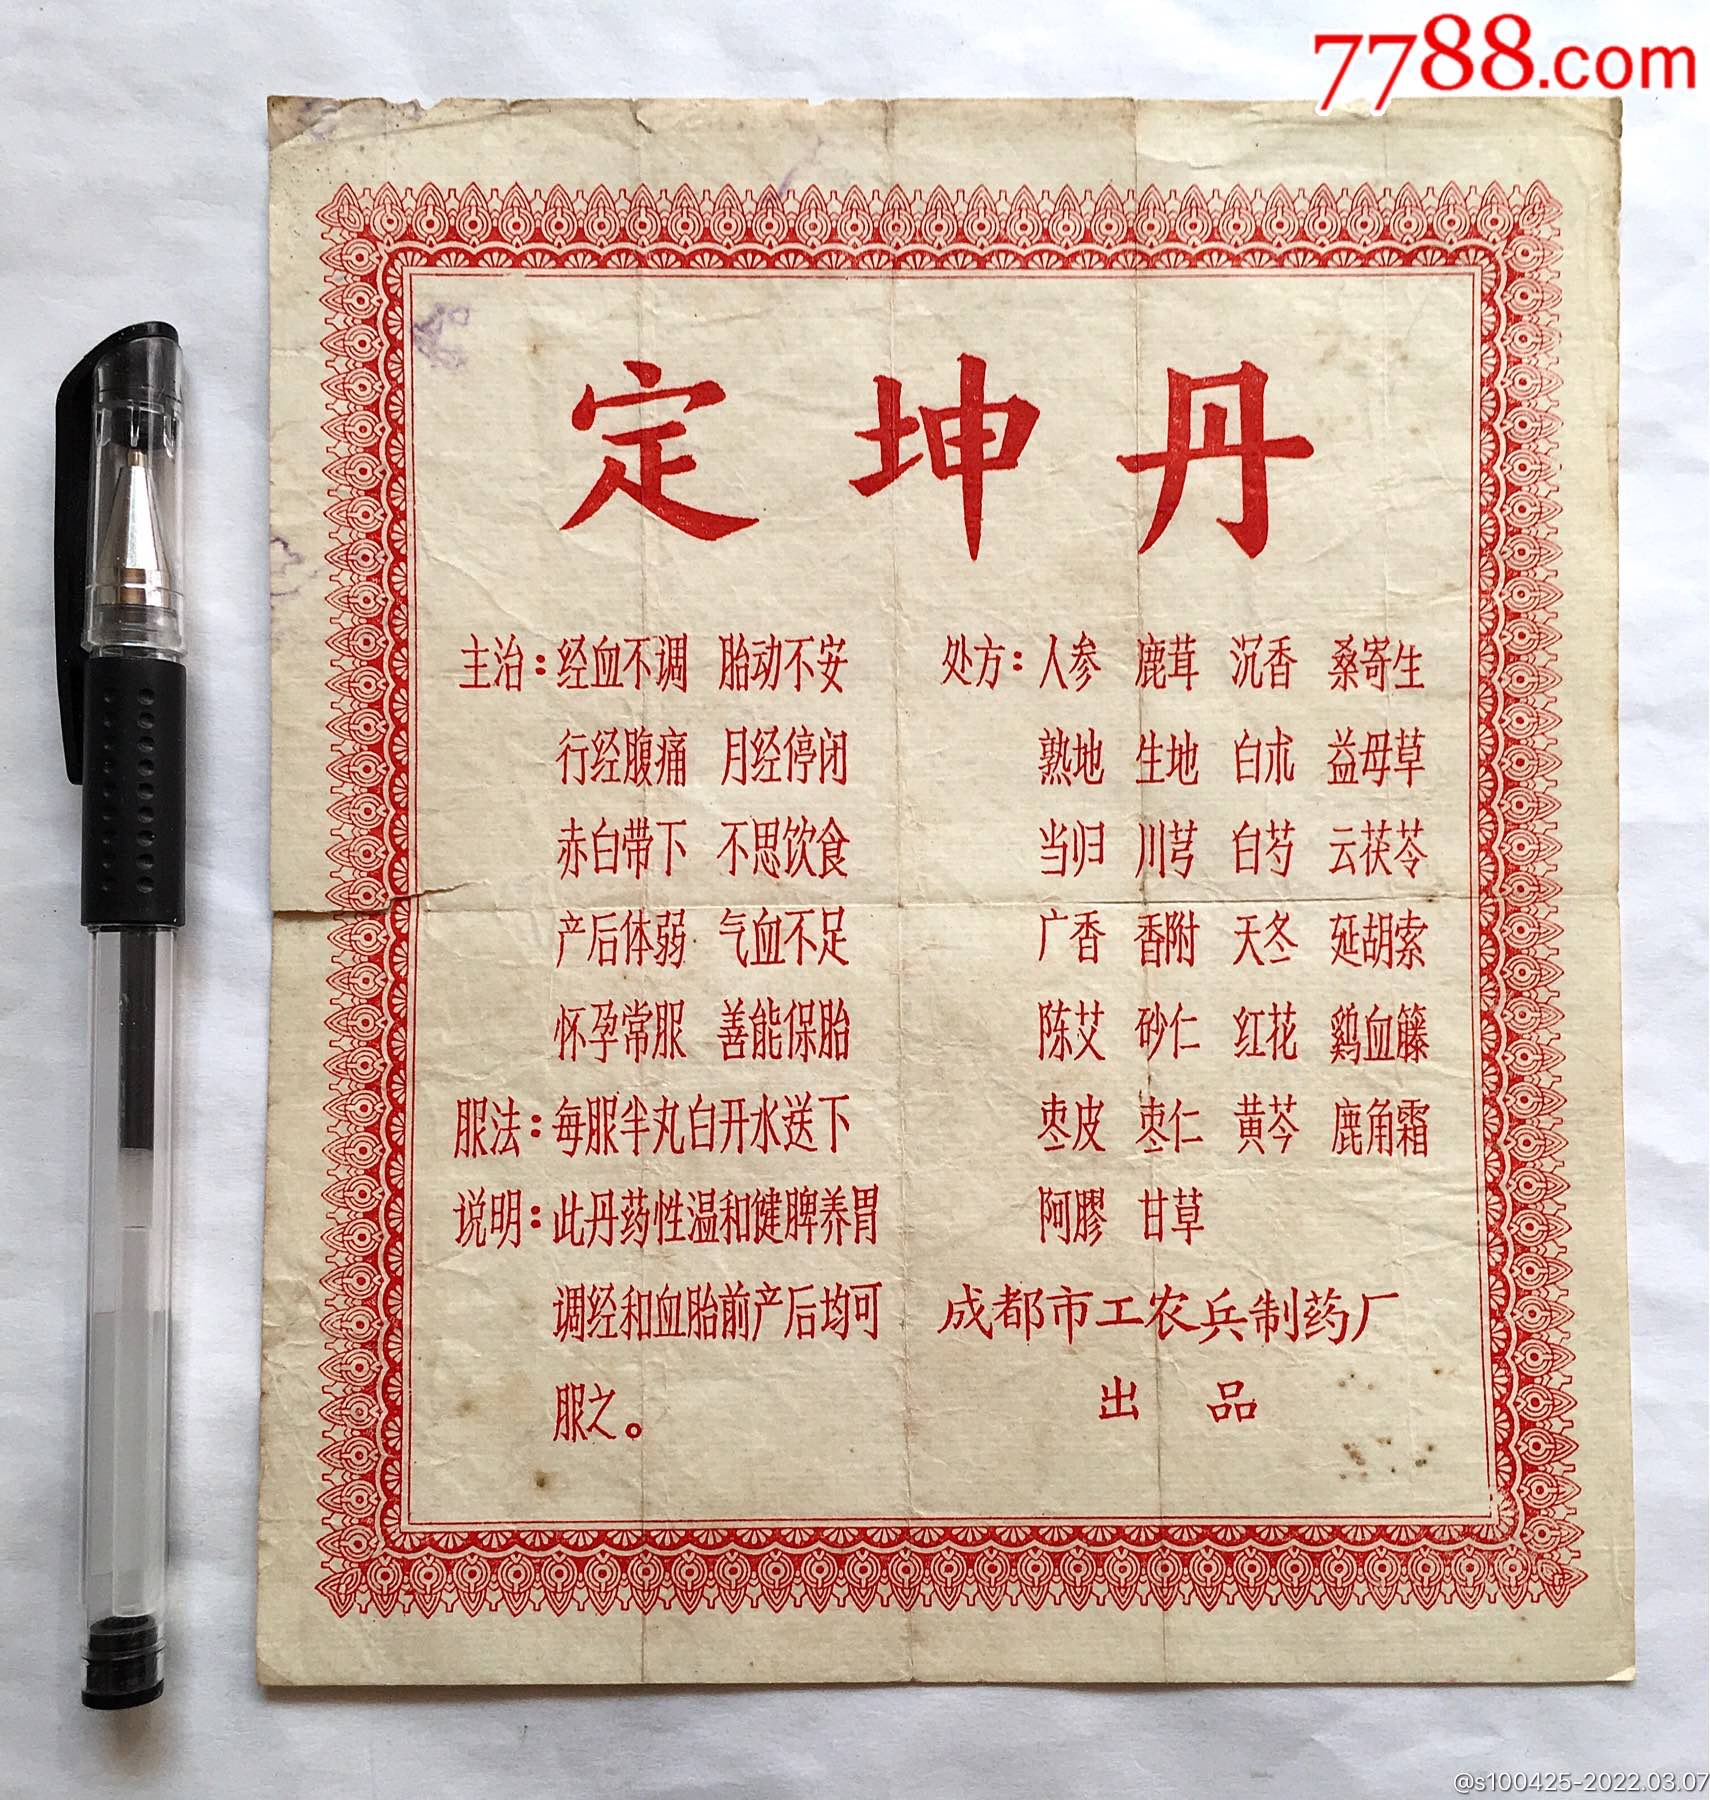 7788.com
定坤丹
主治：经血不调 胎动不安
行经腹痛 月经停闭
赤白带下 不思饮食
产后体弱 气血不足
怀孕常服 善能保胎
服法：每服半丸白开水送下
说明：此丹药性温和健脾养胃
调经和血胎前产后均可
服之。
处方：人参 鹿茸 沉香 桑寄生
熟地 生地 白朮 益母草
当归 川芎 白芍 云茯苓
广香 香附 天冬 延胡索
陈艾 砂仁 红花 鷄血籐
枣皮 枣仁 黄芩 鹿角霜
阿膠 甘草
成都市工农兵制药厂
出品
@s100425-2022.03.07